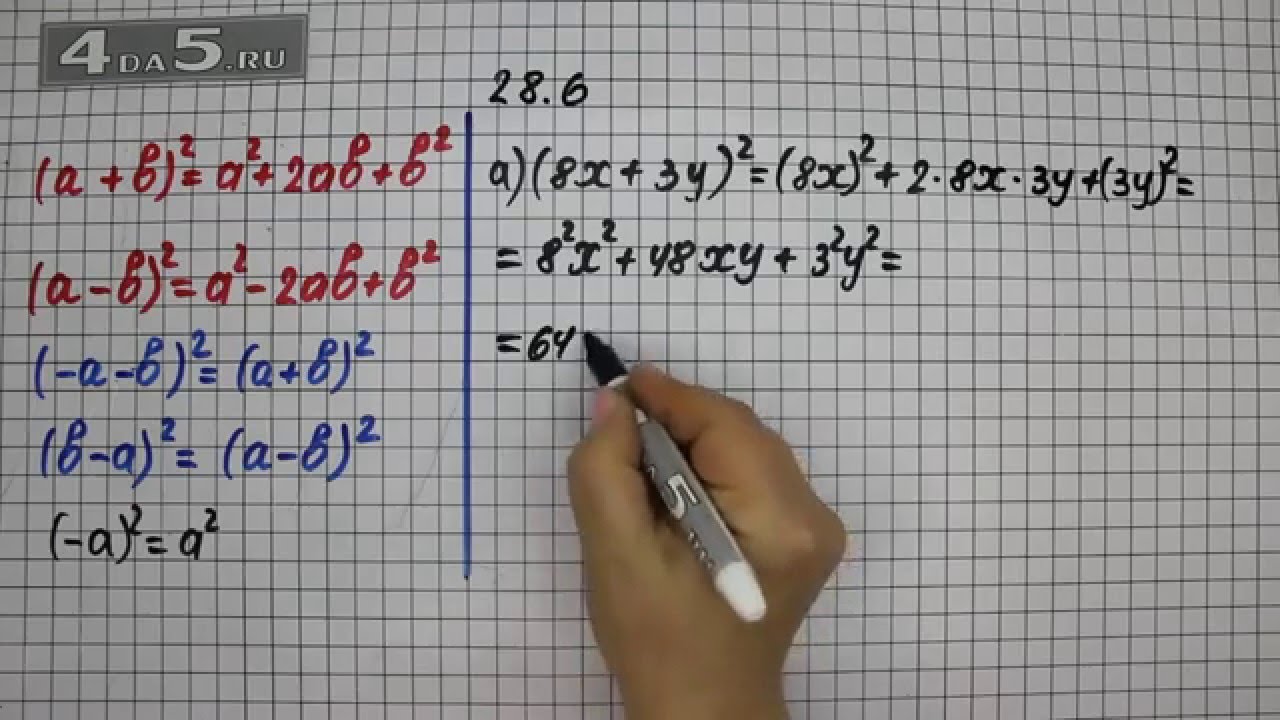 4DA5.RU
(a + b)² = a² + 2ab + b²
(a - b)² = a² - 2ab + b²
(-a - b)² = (a + b)²
(b - a)² = (a - b)²
(-a)² = a²
28.6
a) (8x + 3y)² = (8x)² + 2 · 8x · 3y + (3y)² =
= 8²x² + 48xy + 3²y² =
= 64
5